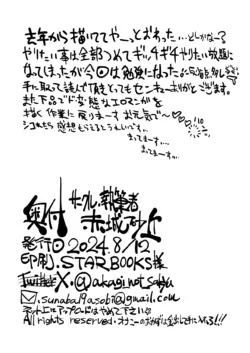 去年から描いててやーっとおわった…どーかな〜?
やりたい事は全部つめてギッチギチやりたい放題に
なってしまったが今回は勉強になった
手に取って読んで頂きとてもセンキューありがとござます。
また下品でド変態なエロマンガを
描く作業に戻りまーすお元気で〜♡♡
シコれたら感想もらえるとうれしいです…
まってまーす…
まってまーす…
奥付
サークル、執筆者
赤城アサ丘
発行日 2024.8/12
印刷.STARBOOKS様
X.@akaginotsakyu
✉.sunaba19asobi@gmail.com
ネット上にアップロードはやめて下さい
All rights reserved.